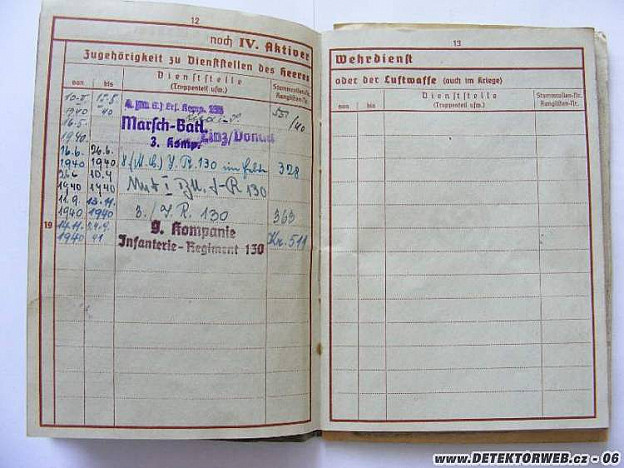 12
noch IV. Aktiver
Zugehörigkeit zu Dienststellen des Heeres
von
bis
Dienststelle
(Truppenteil usw.)
Stammrollen-Nr.
Ranglisten-Nr.
1940
40
16.5.
Marsch-Batl.
Linz/Donau
1940
3. Komp.
16.6.
26.6.
1940
1940
J. R. 130 im Felde
328
1940
1940
11.9.
13.11.
1940
1940
3./J. R. 130
363
19
14.11.
1940
41
9. Kompanie
Infanterie-Regiment 130
Kr. 511
13
Wehrdienst
oder der Luftwaffe (auch im Kriege)
von
bis
Dienststelle
(Truppenteil usw.)
Stammrollen-Nr.
Ranglisten-Nr.
www.DETEKTORWEB.cz - 06